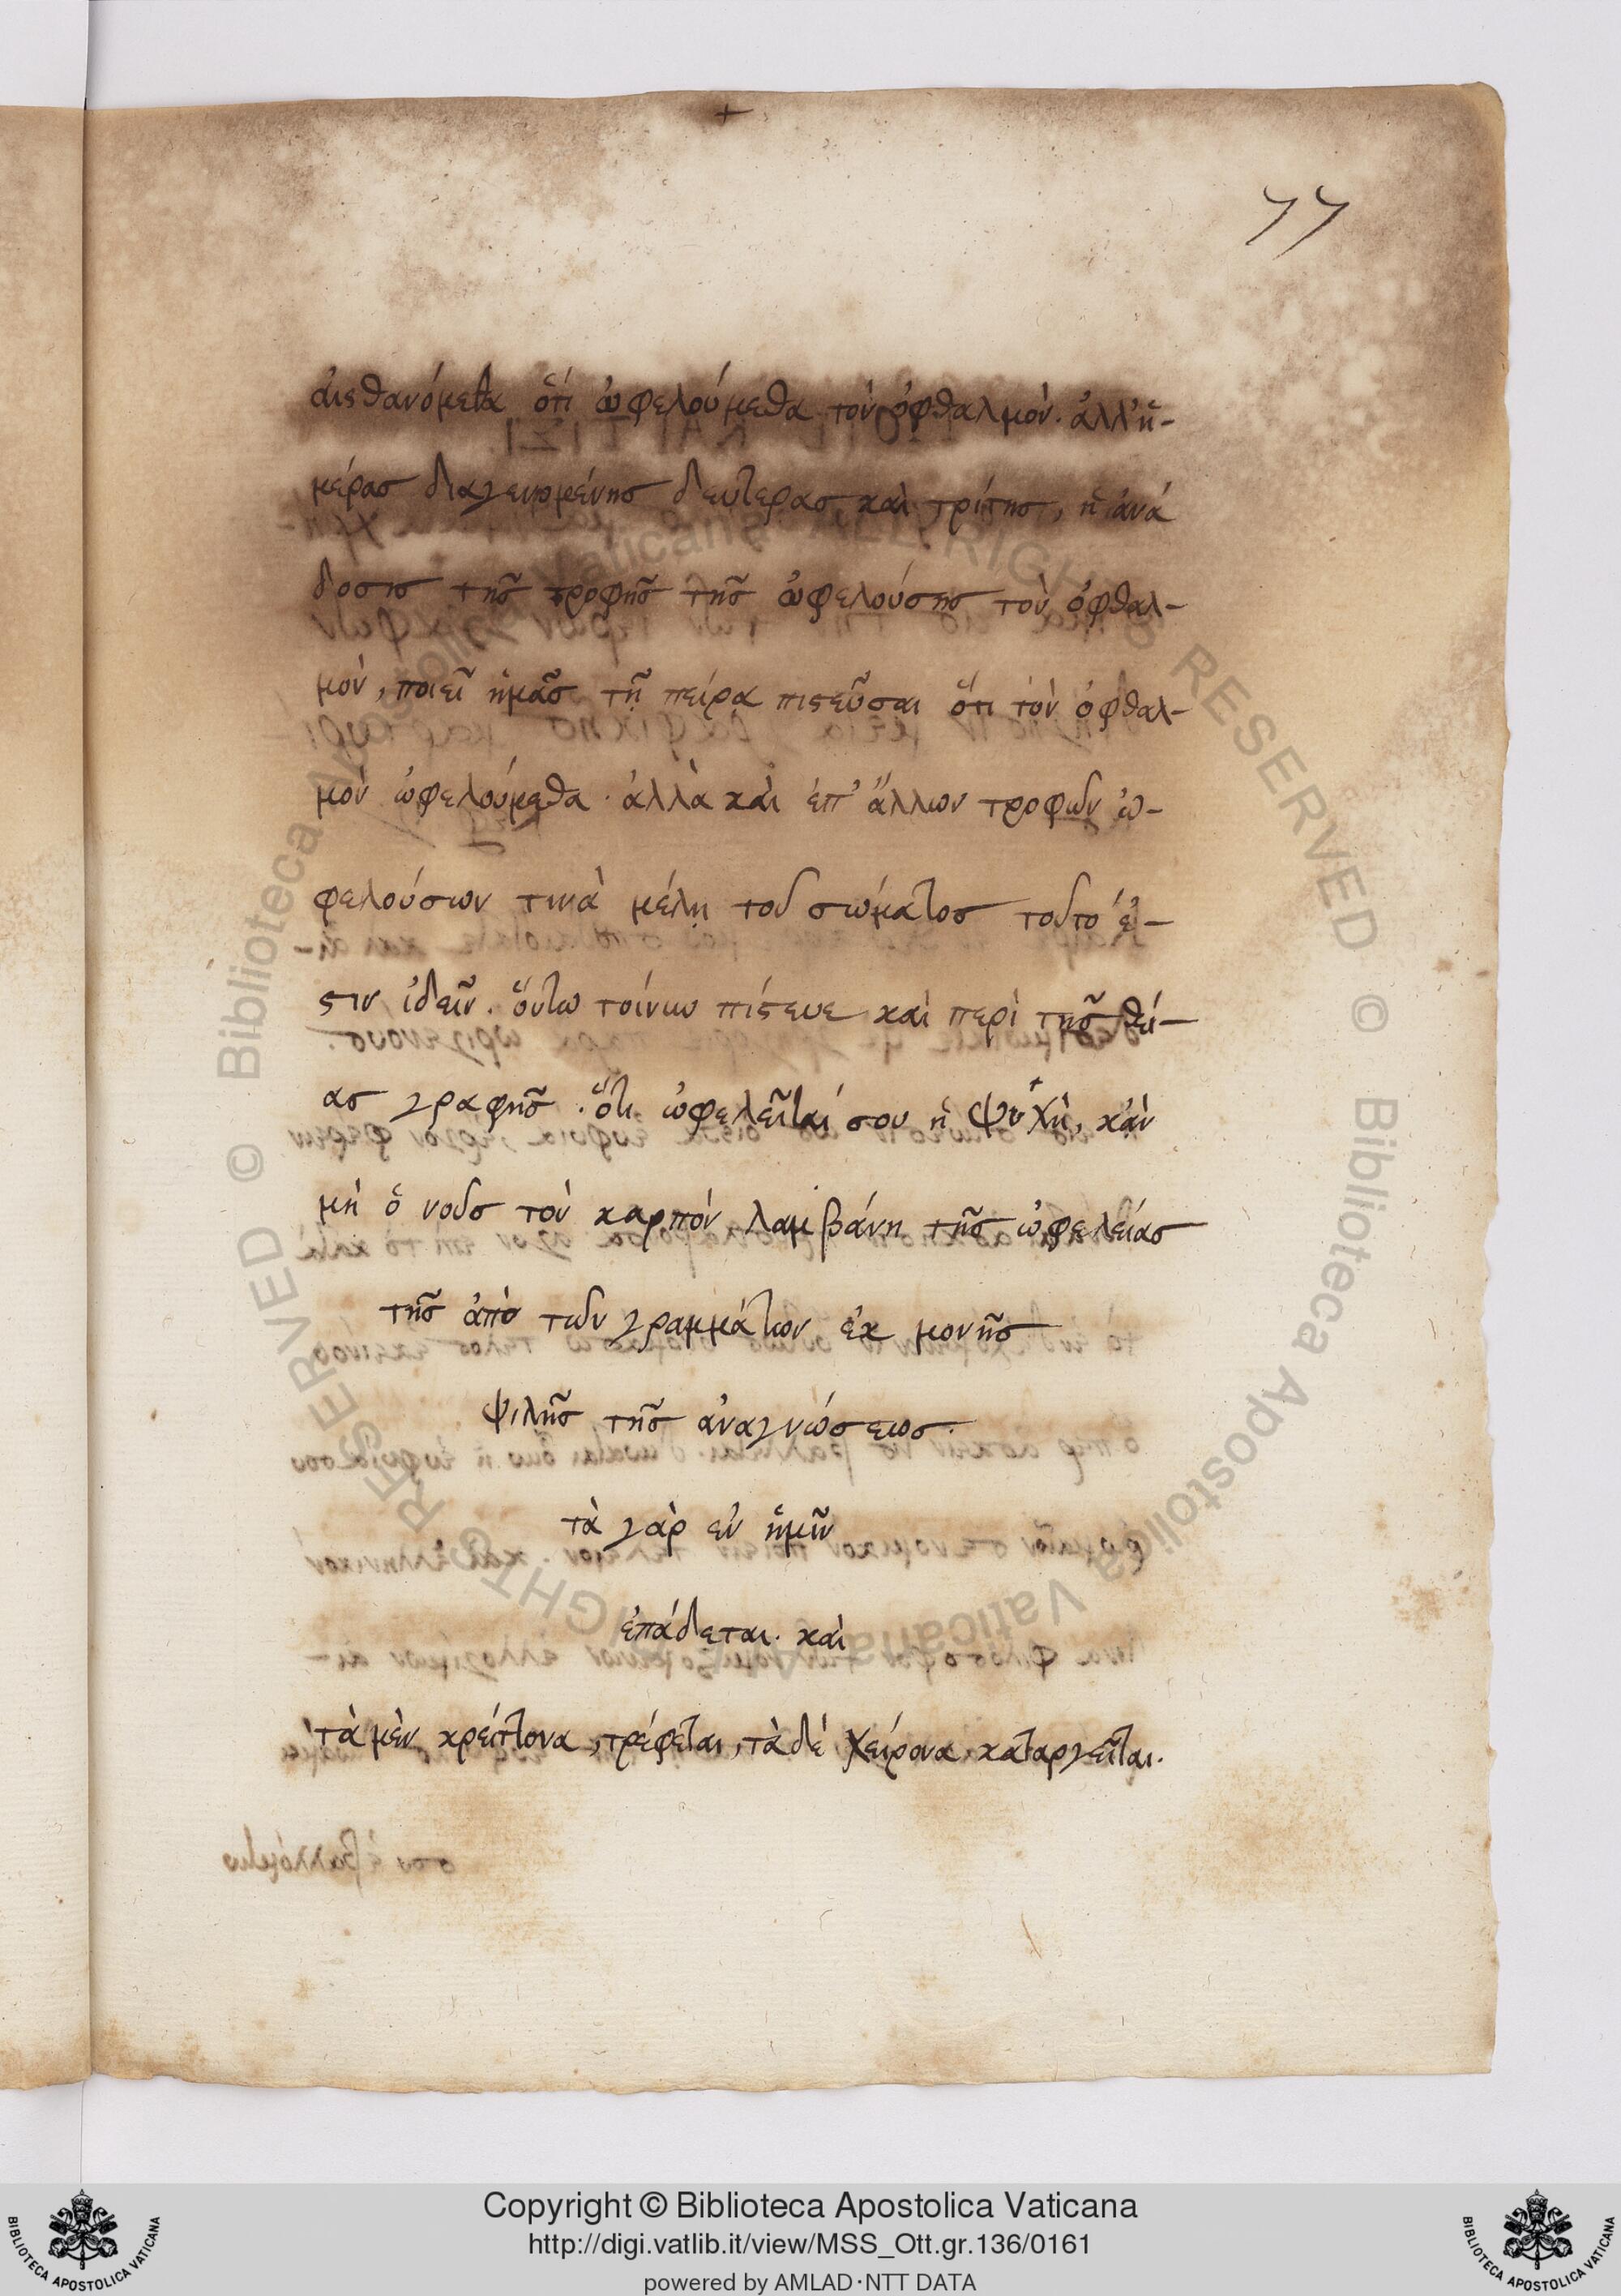 77
ἀισθανόμεθα ὅτι ὠφελούμεθα τὸν ὀφθαλμόν. ἀλλ' ἡ-
μέρασ διαγενομένησ δευτέρασ καὶ τρίτησ, ἡ ἀνά
δοσισ τῆσ τροφῆσ τῆσ ὠφελούσησ τὸν ὀφθαλ-
μὸν, ποιεῖ ἡμᾶσ τῇ πείρᾳ πιστεῦσαι ὅτι τὸν ὀφθαλ-
μὸν ὠφελούμεθα. ἀλλὰ καὶ ἐπ' ἄλλων τροφῶν ὠ-
φελούσων τινὰ μέλη τοῦ σώματοσ τοῦτο ἔ-
στιν ἰδεῖν. ὅυτω τοίνυν πίστευε καὶ περὶ τῆσ θεί-
ασ γραφῆσ. ὅτι ὠφελεῖταί σου ἡ ψυχὴ, κἀν
μὴ ὁ νοῦσ τὸν καρπὸν λαμβάνη τῆσ ὠφελείασ
τῆσ ἀπὸ τῶν γραμμάτων ἐκ μονῆσ
ψιλῆσ τῆσ ἀναγνώσεωσ.
τὰ γὰρ ἐν ἡμῖν
ἐπάδεται. καὶ
τὰ μὲν κρείττονα, τρέφεται, τὰ δὲ χείρονα, καταργεῖται.
Copyright © Biblioteca Apostolica Vaticana
http://digi.vatlib.it/view/MSS_Ott.gr.136/0161
powered by AMLAD·NTT DATA
BIBLIOTECA APOSTOLICA VATICANA
BIBLIOTECA APOSTOLICA VATICANA